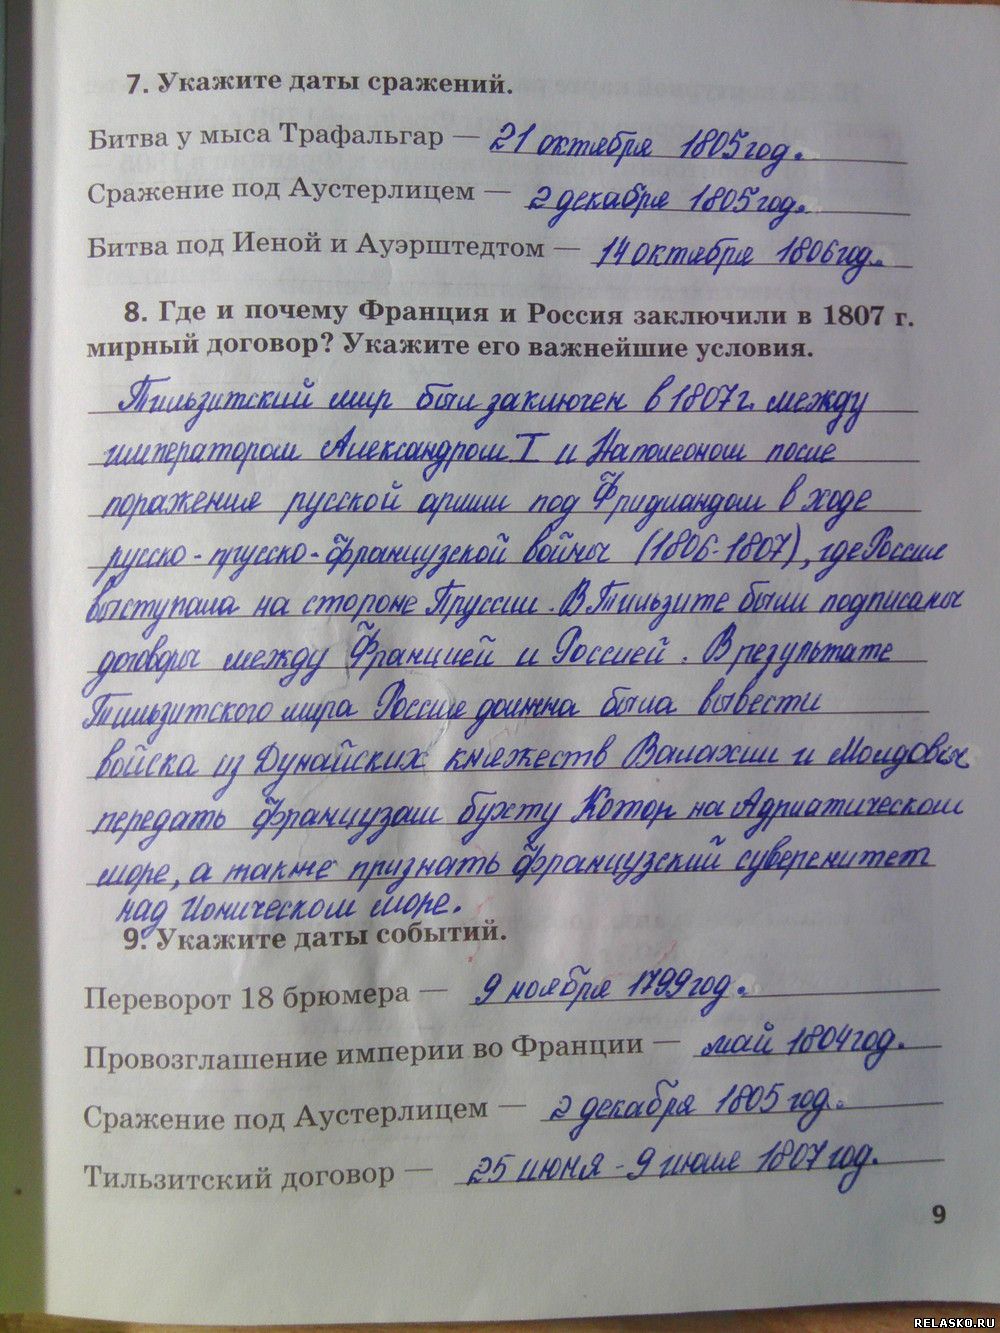 7. Укажите даты сражений.
Битва у мыса Трафальгар — 21 октября 1805 год.
Сражение под Аустерлицем — 2 декабря 1805 год.
Битва под Иеной и Ауэрштедтом — 14 октября 1806 год.
8. Где и почему Франция и Россия заключили в 1807 г.
мирный договор? Укажите его важнейшие условия.
Тильзитский мир был заключен в 1807 г. между
императором Александром I и Наполеоном после
поражения русской армии под Фридландом в ходе
русско-прусско-французской войны (1806-1807), где Россия
выступала на стороне Пруссии. В Тильзите были подписаны
договоры между Францией и Россией. В результате
Тильзитского мира Россия должна была вывести
войска из Дунайских княжеств Валахии и Молдовы
передать французам бухту Котор на Адриатическом
море, а также признать французский суверенитет
над Ионическом море.
9. Укажите даты событий.
Переворот 18 брюмера — 9 ноября 1799 год.
Провозглашение империи во Франции — май 1804 год.
Сражение под Аустерлицем — 2 декабря 1805 год.
Тильзитский договор — 25 июня - 9 июля 1807 год.
9
RELASKO.RU